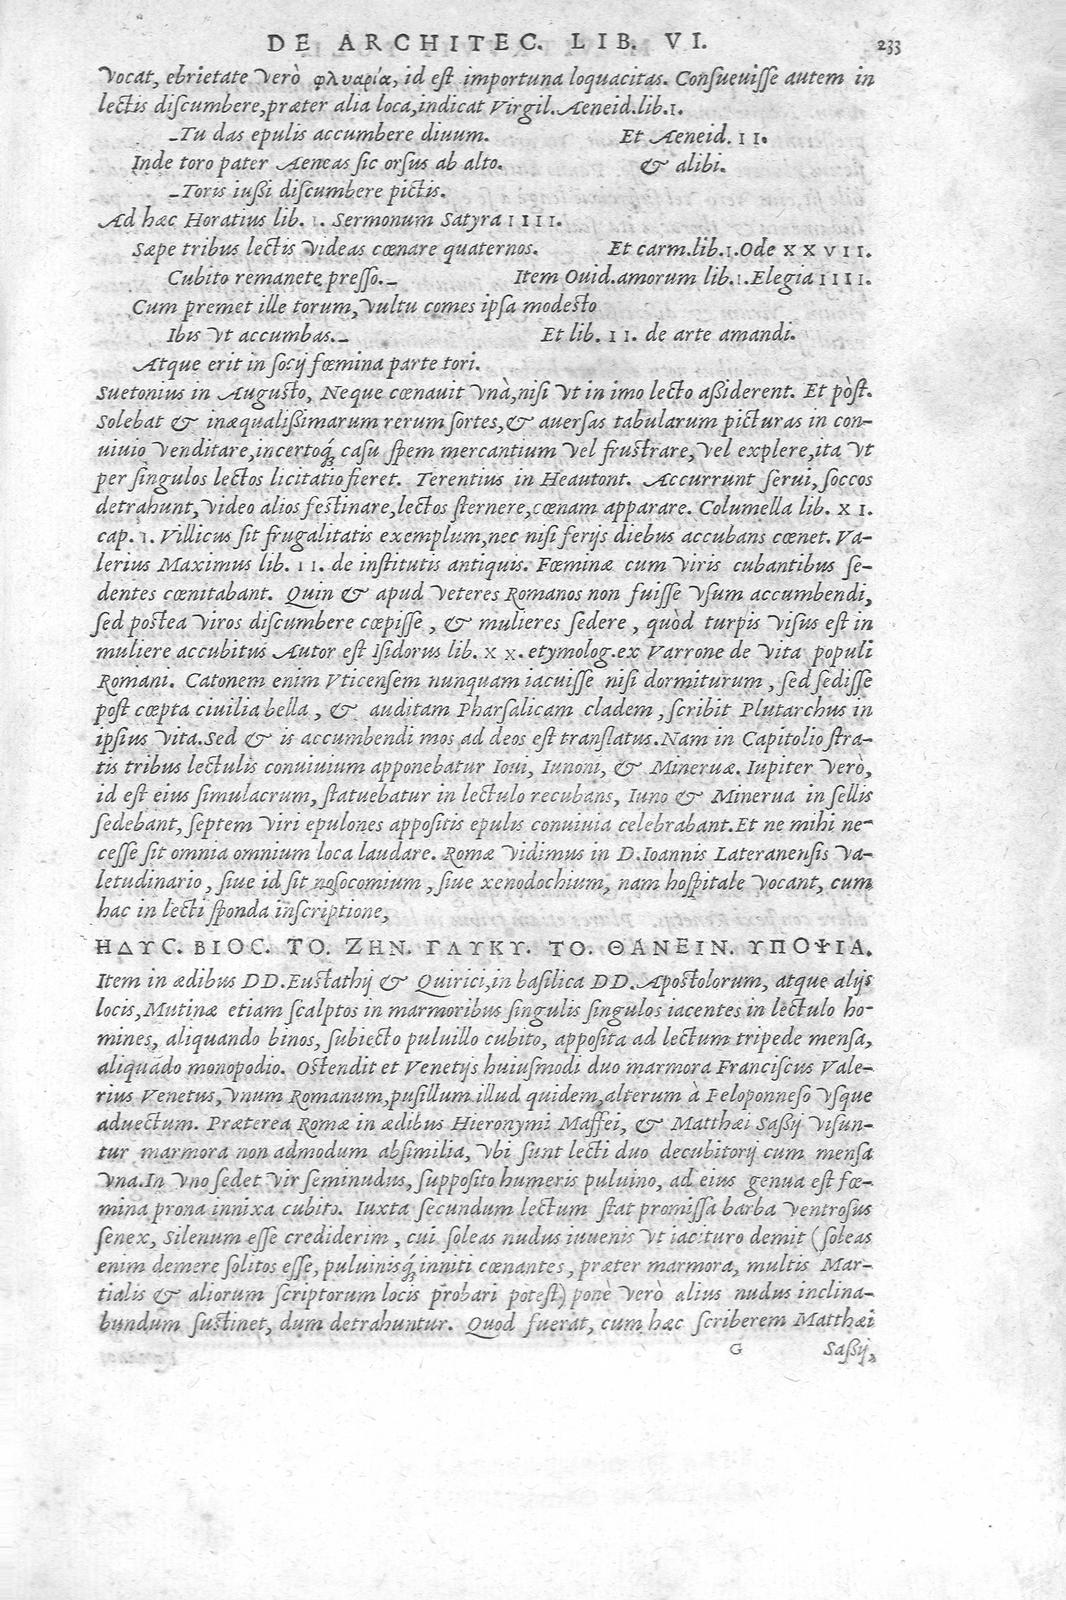 DE ARCHITEC. LIB. VI. 233
vocat, ebrietate verò φλυαρία, id est importuna loquacitas. Consueuisse autem in
lectis discumbere, præter alia loca, indicat Virgil. Aeneid. lib. I.
_Tu das epulis accumbere diuum. Et Aeneid. II.
Inde toro pater Aeneas sic orsus ab alto. & alibi.
_Toris iussi discumbere pictis.
Ad hæc Horatius lib. I. Sermonum Satyra IIII.
Sæpe tribus lectis videas cœnare quaternos. Et carm. lib. I. Ode XXVII.
Cubito remanete presso._ Item Ouid. amorum lib. I. Elegia IIII.
Cum premet ille torum, vultu comes ipsa modesto
Ibis vt accumbas._ Et lib. II. de arte amandi.
Atque erit in socij fœmina parte tori.
Suetonius in Augusto, Neque cœnauit vnà, nisi vt in imo lecto assiderent. Et pòst.
Solebat & inæqualissimarum rerum sortes, & auersas tabularum picturas in con-
uiuio venditare, incertoq́; casu spem mercantium vel frustrare, vel explere, ita vt
per singulos lectos licitatio fieret. Terentius in Heautont. Accurrunt serui, soccos
detrahunt, video alios festinare, lectos sternere, cœnam apparare. Columella lib. XI.
cap. I. Villicus sit frugalitatis exemplum, nec nisi ferijs diebus accubans cœnet. Va-
lerius Maximus lib. II. de institutis antiquis. Fœminæ cum viris cubantibus se-
dentes cœnitabant. Quin & apud veteres Romanos non fuisse vsum accumbendi,
sed postea viros discumbere cœpisse, & mulieres sedere, quòd turpis visus est in
muliere accubitus Autor est Isidorus lib. XX. etymolog. ex Varrone de vita populi
Romani. Catonem enim Vticensem nunquam iacuisse nisi dormiturum, sed sedisse
post cœpta ciuilia bella, & auditam Pharsalicam cladem, scribit Plutarchus in
ipsius vita. Sed & is accumbendi mos ad deos est translatus. Nam in Capitolio stra-
tis tribus lectulis conuiuium apponebatur Ioui, Iunoni, & Mineruæ. Iupiter verò,
id est eius simulacrum, statuebatur in lectulo recubans, Iuno & Minerua in sellis
sedebant, septem viri epulones appositis epulis conuiuia celebrabant. Et ne mihi ne-
cesse sit omnia omnium loca laudare. Romæ vidimus in D. Ioannis Lateranensis va-
letudinario, siue id sit nosocomium, siue xenodochium, nam hospitale vocant, cum
hac in lecti sponda inscriptione,
ΗΔΥC. ΒΙΟC. ΤΟ. ΖΗΝ. ΓΛΥΚΥ. ΤΟ. ΘΑΝΕΙΝ. ΥΠΟΨΙΑ.
Item in ædibus DD. Eustathij & Quirici, in basilica DD. Apostolorum, atque alijs
locis, Mutinæ etiam scalptos in marmoribus singulis singulos iacentes in lectulo ho-
mines, aliquando binos, subiecto puluillo cubito, apposita ad lectum tripede mensa,
aliquādo monopodio. Ostendit et Venetijs huiusmodi duo marmora Franciscus Vale-
rius Venetus, vnum Romanum, pusillum illud quidem, alterum à Peloponneso vsque
aduectum. Præterea Romæ in ædibus Hieronymi Maffei, & Matthæi Sassij visun-
tur marmora non admodum absimilia, vbi sunt lecti duo decubitorij cum mensa
vna. In vno sedet vir seminudus, supposito humeris puluino, ad eius genua est fœ-
mina prona innixa cubito. Iuxta secundum lectum stat promissa barba ventrosus
senex, Silenum esse crediderim, cui soleas nudus iuuenis vt iacituro demit (soleas
enim demere solitos esse, puluinisq́; inniti cœnantes, præter marmora, multis Mar-
tialis & aliorum scriptorum locis probari potest) ponè verò alius nudus inclina-
bundum sustinet, dum detrahuntur. Quod fuerat, cum hæc scriberem Matthæi
G Sassij,